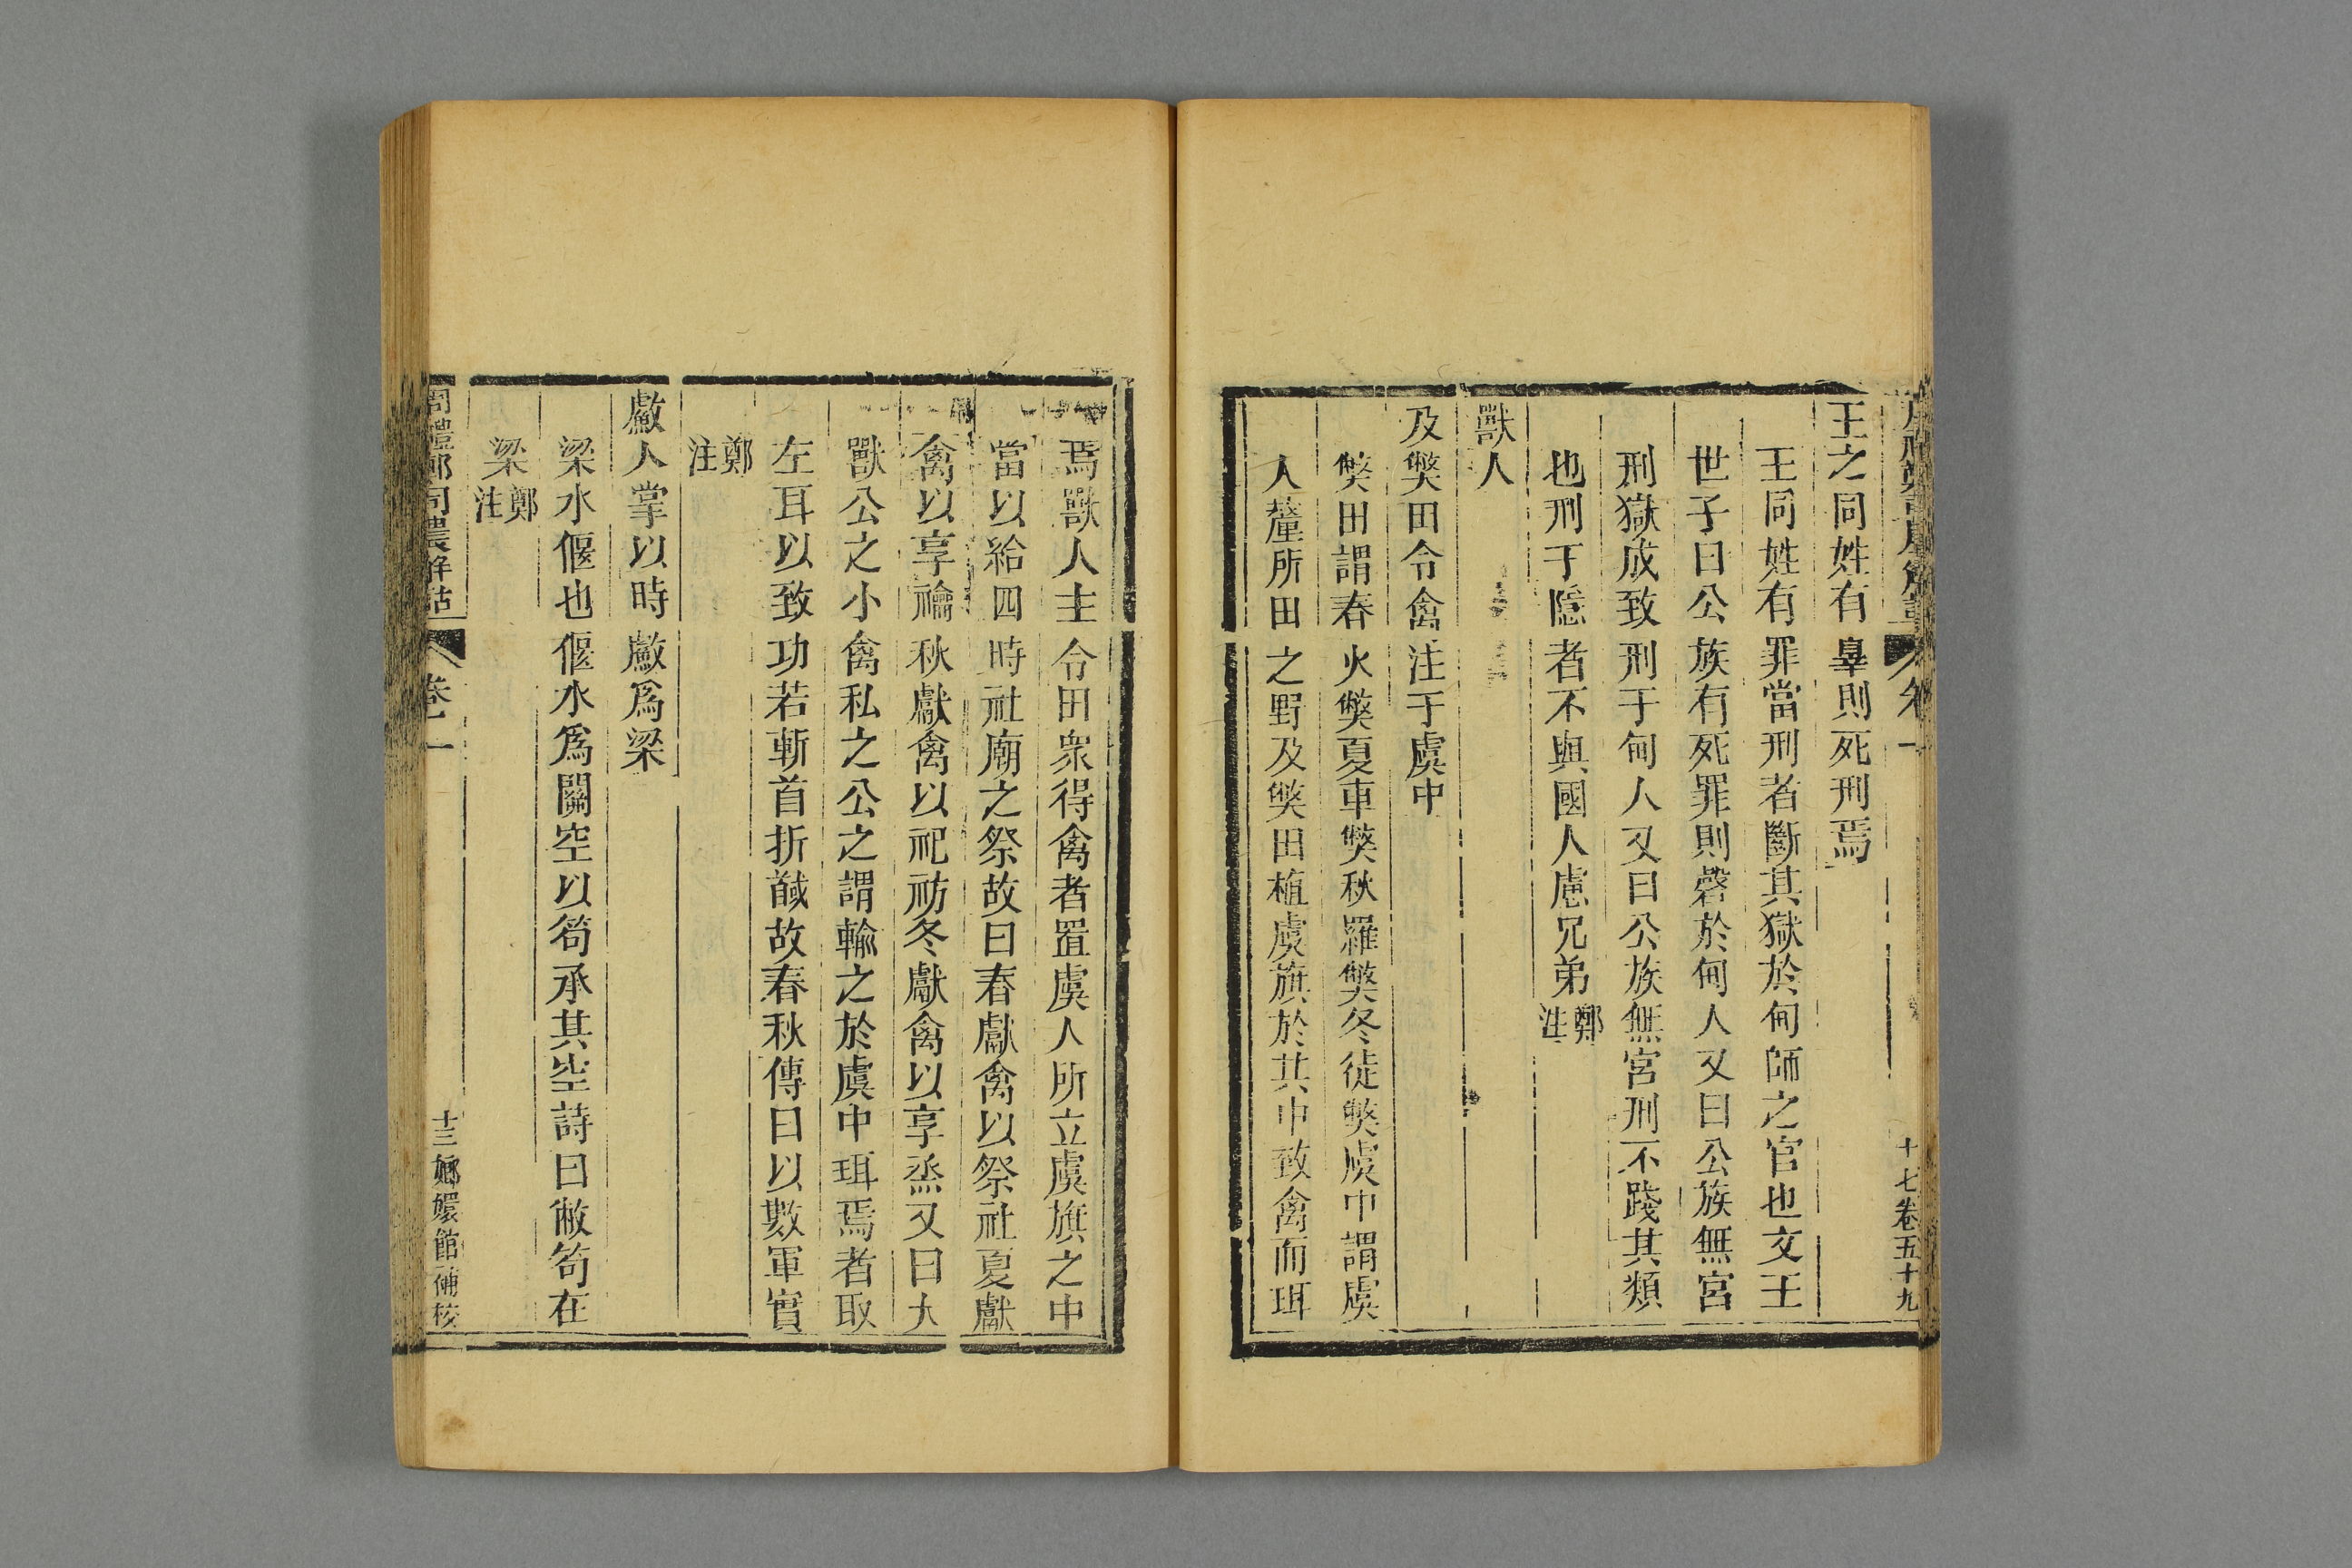 王之同姓有辠則死刑焉
王同姓有罪當刑者斷其獄於甸師之官也文王
世子曰公族有死罪則磬於甸人又曰公族無宮
刑獄成致刑于甸人又曰公族無宮刑不踐其類
也刑于隱者不與國人慮兄弟鄭注
獸人
及獘田令禽注于虞中
獘田謂春火獘夏車獘秋羅獘冬徒獘虞中謂虞
人釐所田之野及獘田植虞旗於其中致禽而珥
十七卷五十九
焉獸人主令田衆得禽者置虞人所立虞旗之中
當以給四時社廟之祭故曰春獻禽以祭社夏獻
禽以享禴秋獻禽以祀祊冬獻禽以享烝又曰大
獸公之小禽私之公之謂輸之於虞中珥焉者取
左耳以致功若斬首折馘故春秋傳曰以數軍實
鄭注
䱷人掌以時䱷爲梁
梁水偃也偃水爲關空以笱承其空詩曰敝笱在
梁鄭注
周禮鄭司農解詁 卷一 十三 嫏嬛館補校